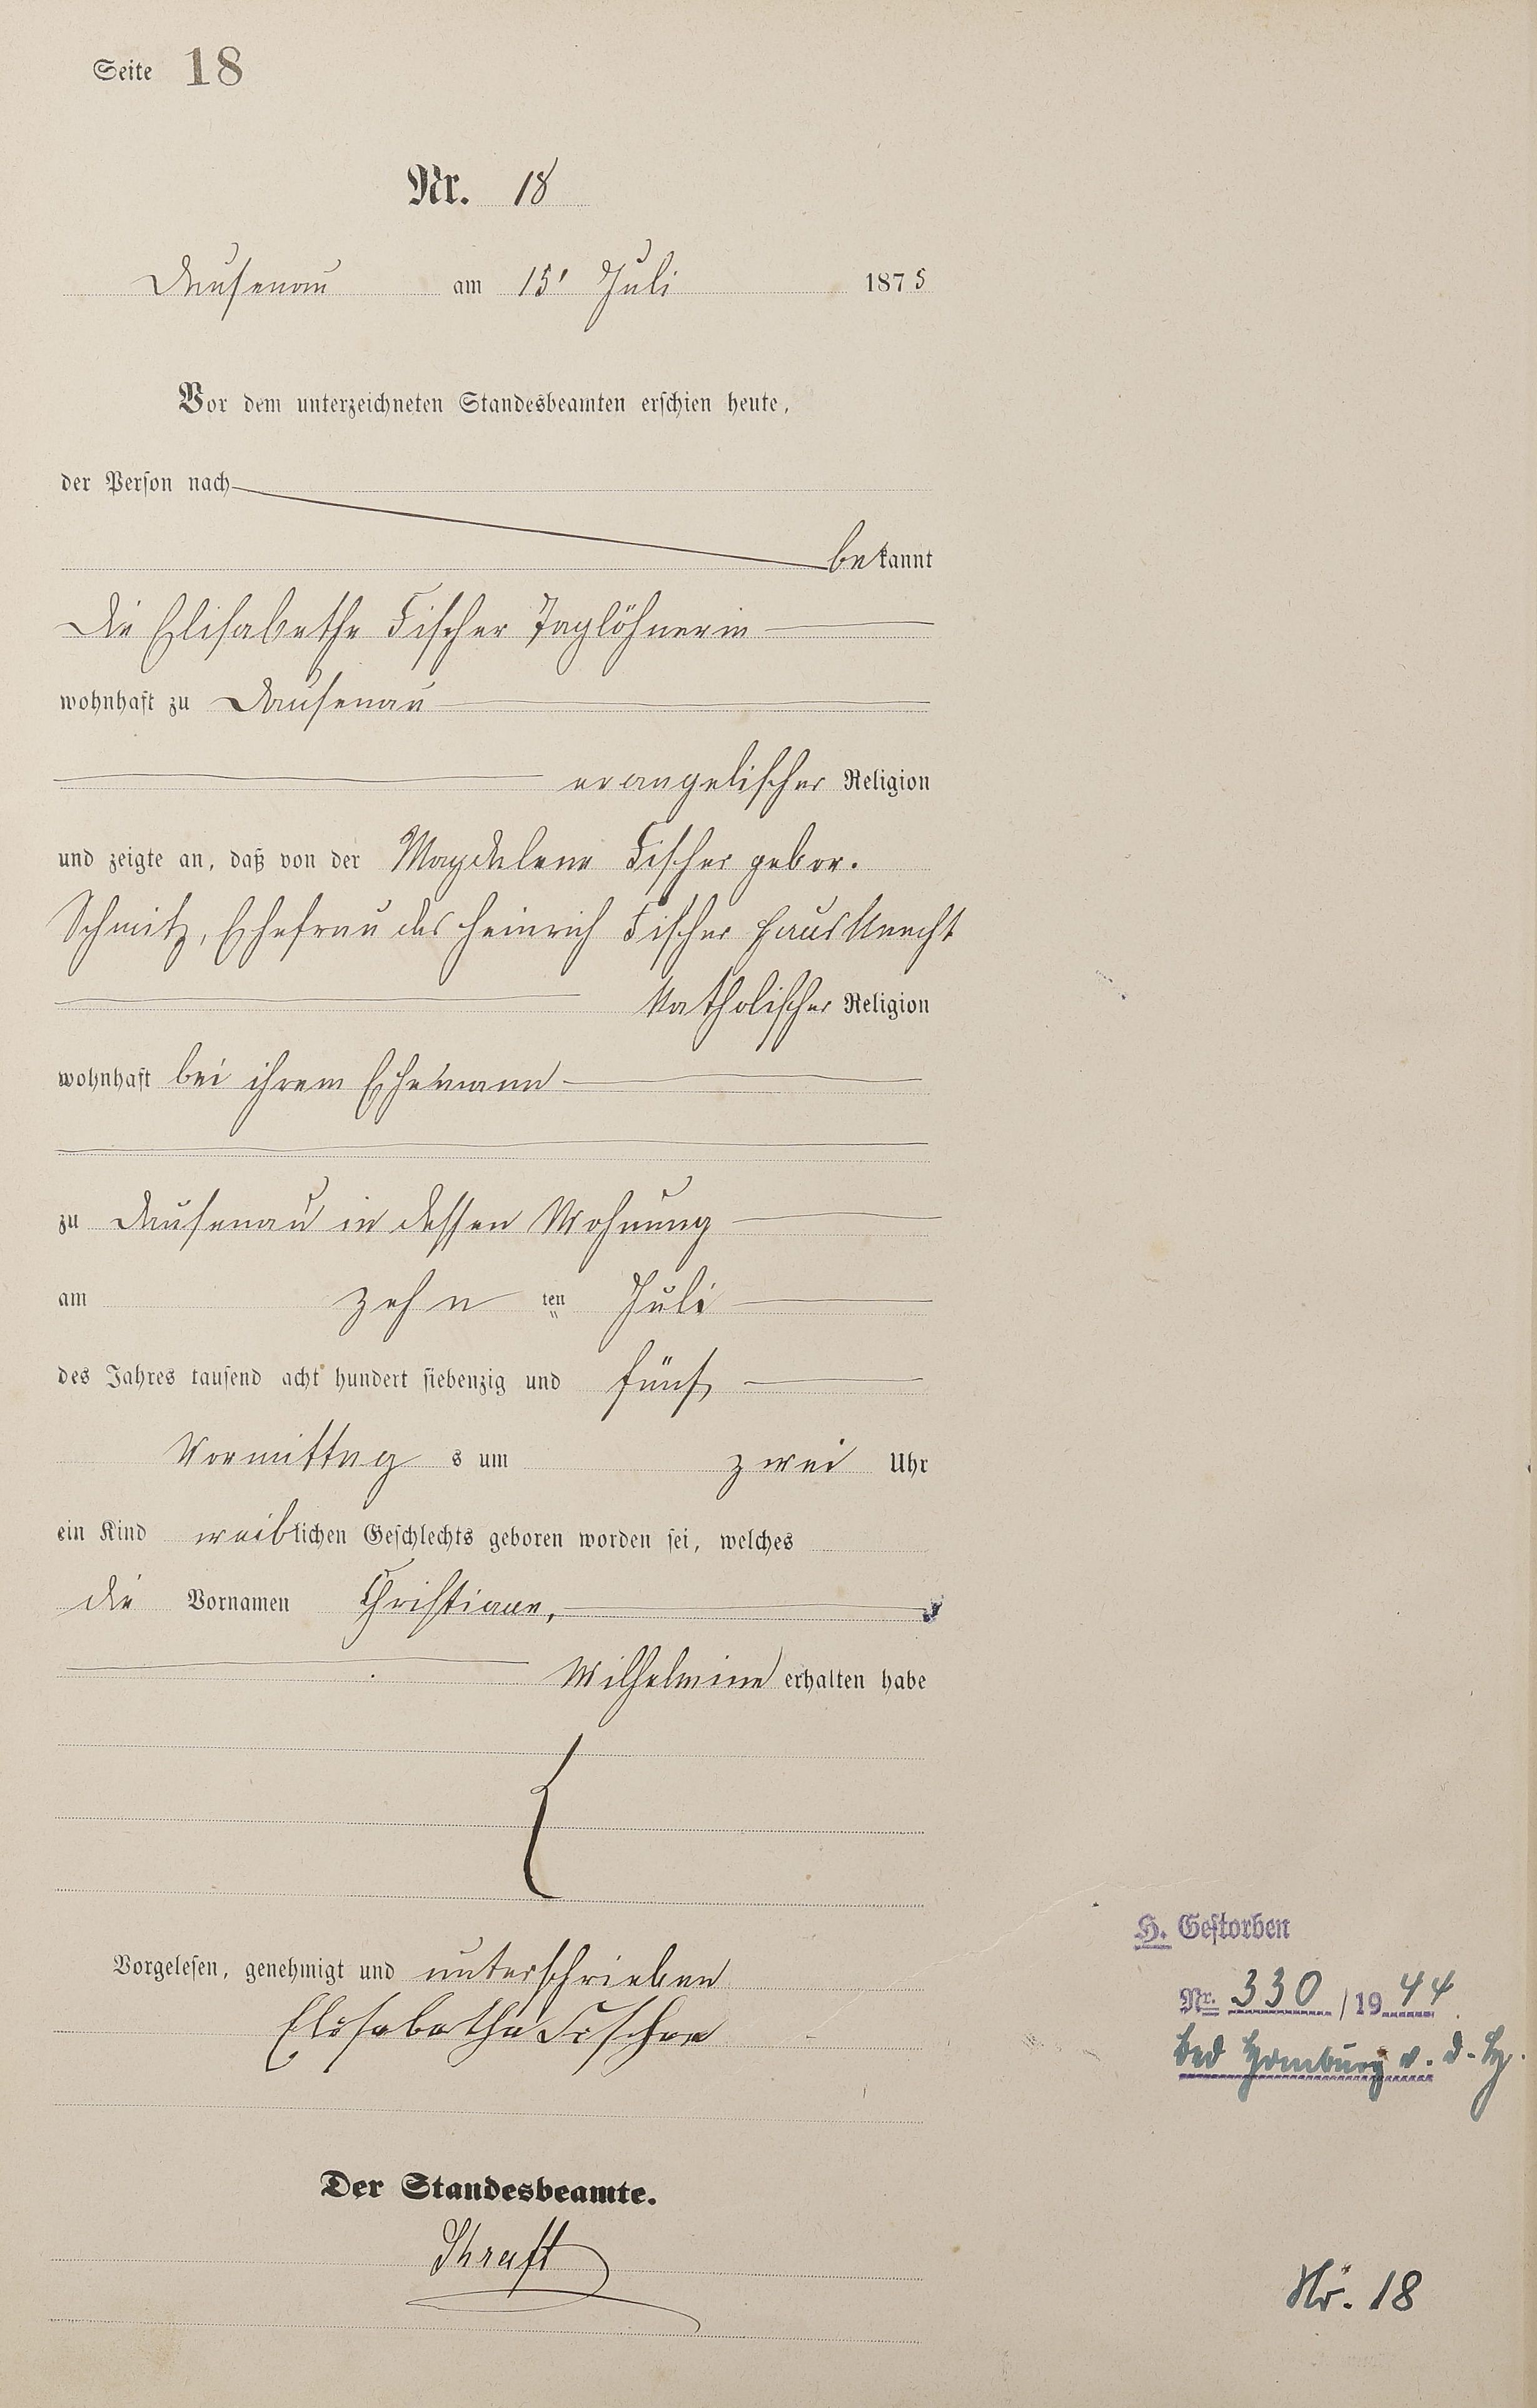 Seite 18
Nr. 18
Dausenau am 15' Juli 1875
Vor dem unterzeichneten Standesbeamten erschien heute,
der Person nach
bekannt
Die Elisabethe Fischer Taglöhnerin
wohnhaft zu Dausenau
evangelischer Religion
und zeigte an, daß von der Magdalena Fischer gebor.
Schmitz, Ehefrau des Heinrich Fischer Hausknecht
katholischer Religion
wohnhaft bei ihrem Ehemann
zu Dausenau in dessen Wohnung
am zehn ten Juli
des Jahres tausend acht hundert siebenzig und fünf
Vormittag s um zwei Uhr
ein Kind weiblichen Geschlechts geboren worden sei, welches
die Vornamen Christiane,
Wilhelmine erhalten habe
Vorgelesen, genehmigt und unterschrieben
Elisabetha Fischer
Der Standesbeamte.
H. Gestorben
Nr. 330 /1944
Bad Homburg v. d. H.
Nr. 18